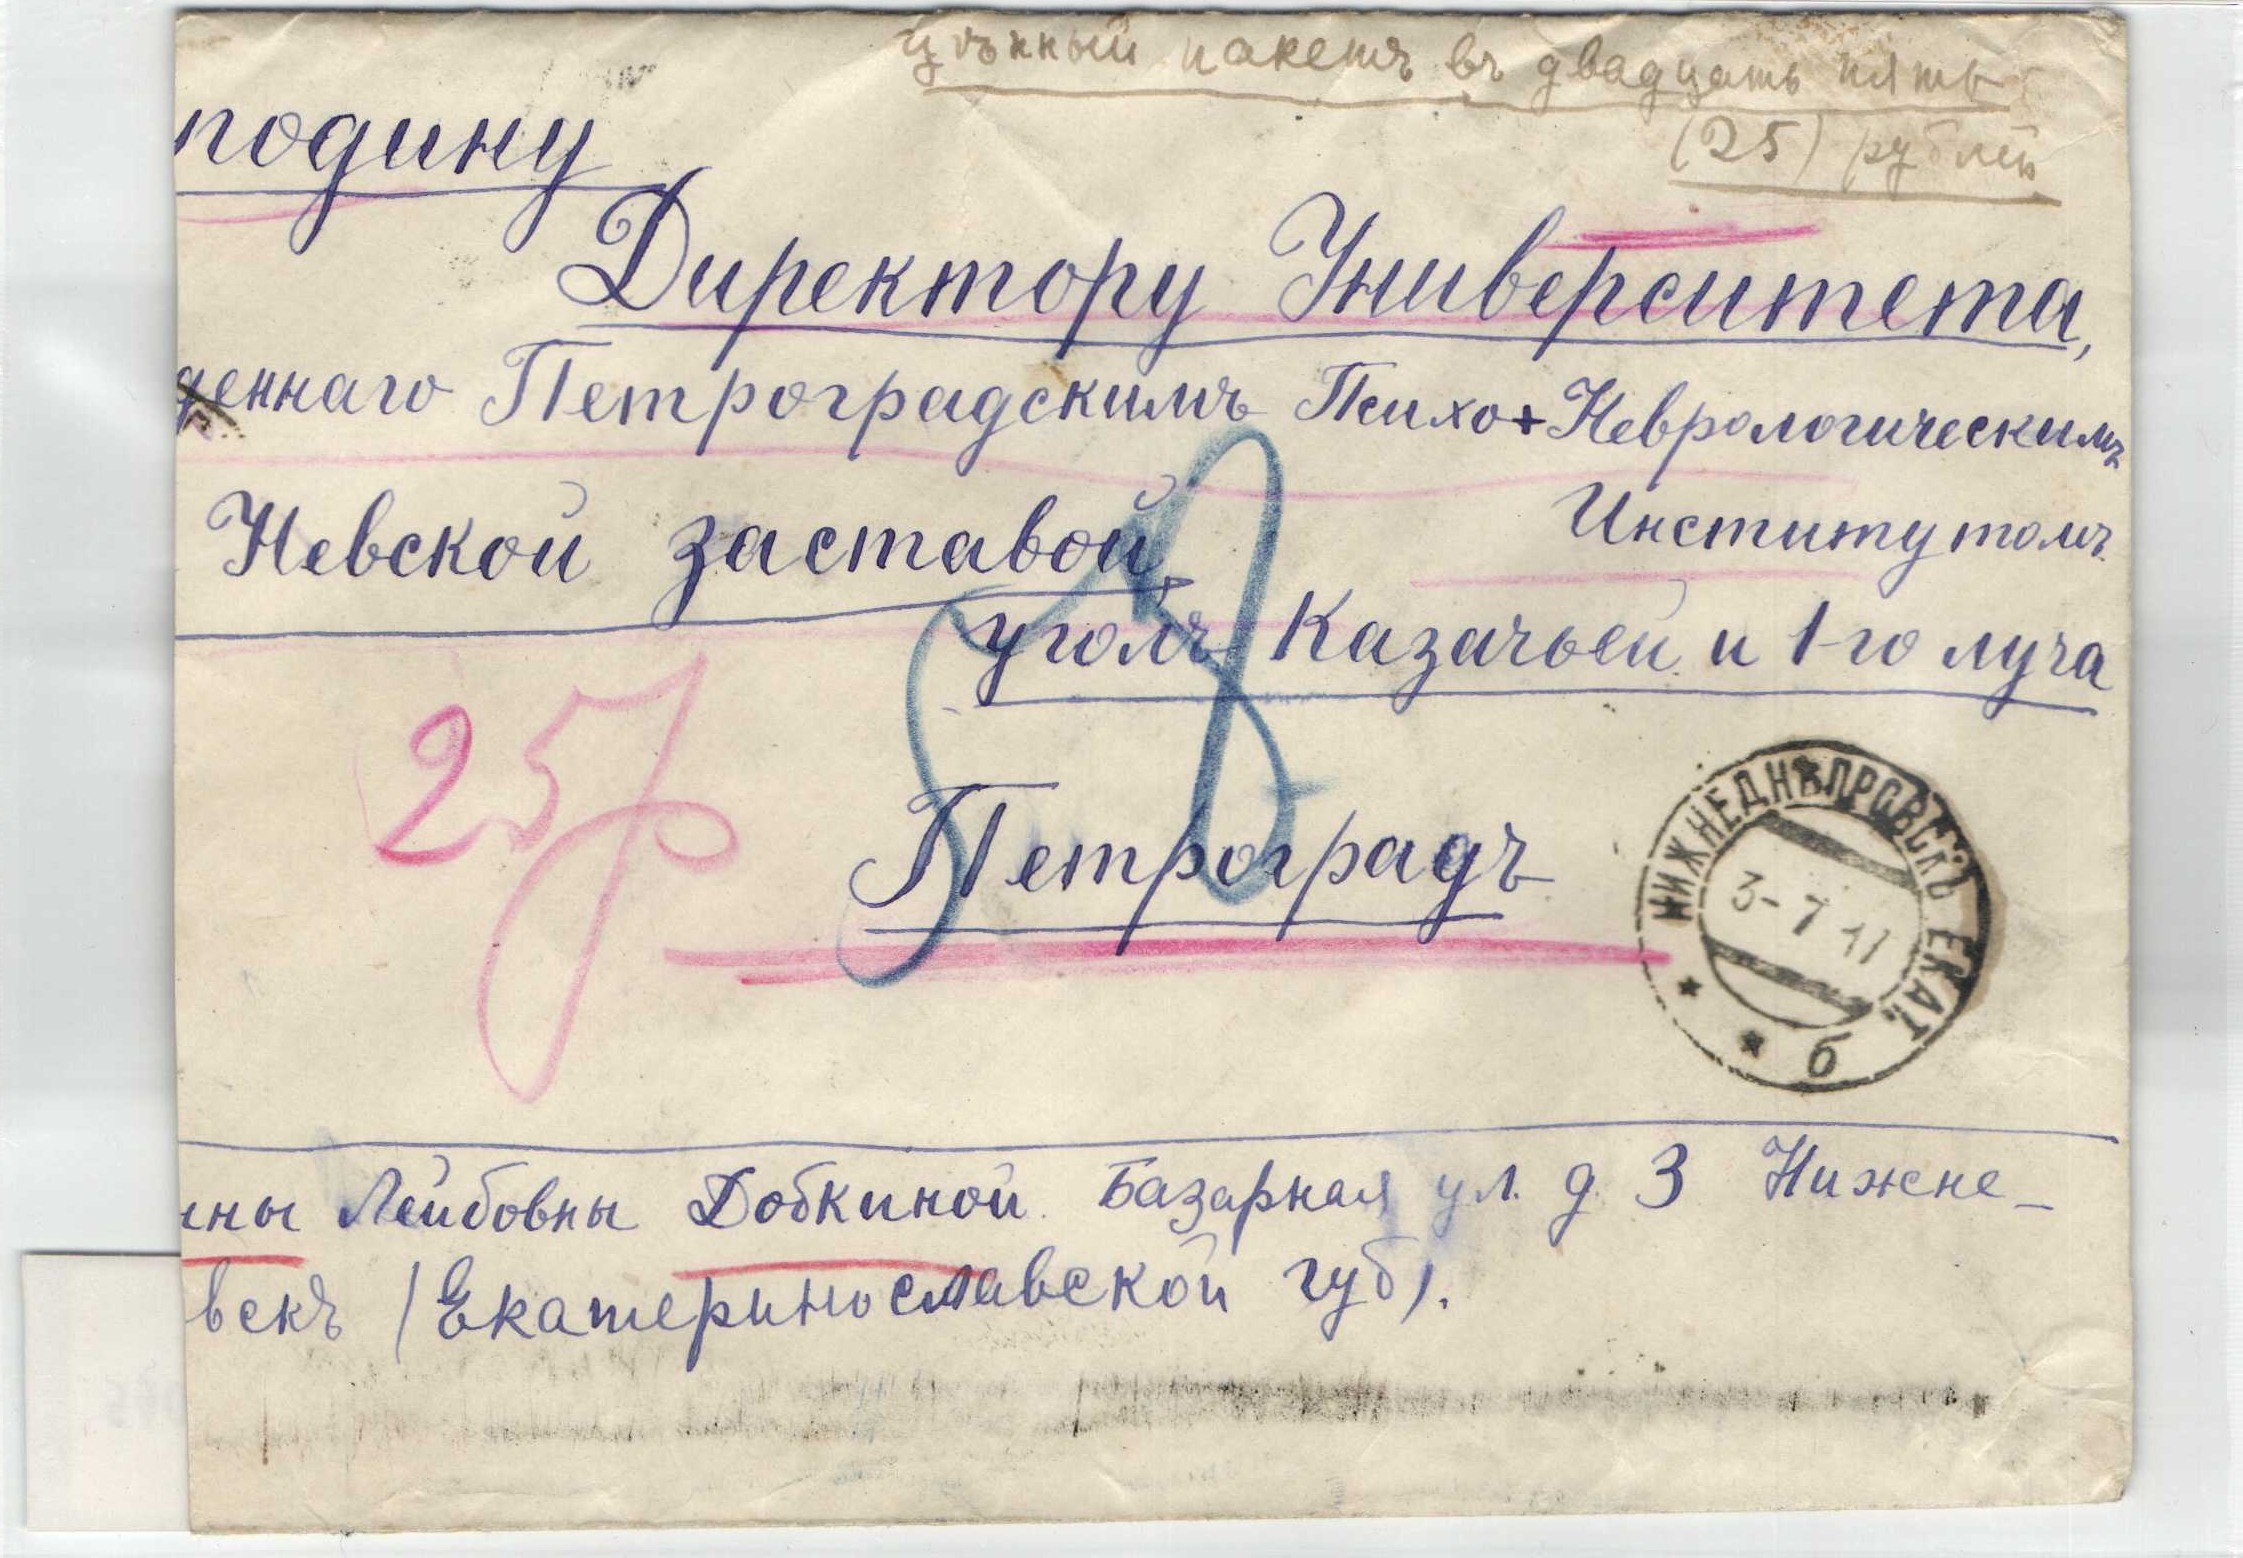 цѣнный пакетъ въ двадцать пять
(25) рублей
подину
Директору Университета,
деннаго Петроградскимъ Психо+Неврологическимъ
Институтомъ
Невской заставой
уголъ Казачьей и 1-го луча
25р
Петроградъ
НИЖНЕДНѢПРОВСКЪ ЕКАТ.
3-7 17
б
нны Лейбовны Добкиной Базарная ул. д 3 Нижне-
вскъ (Екатеринославской губ).